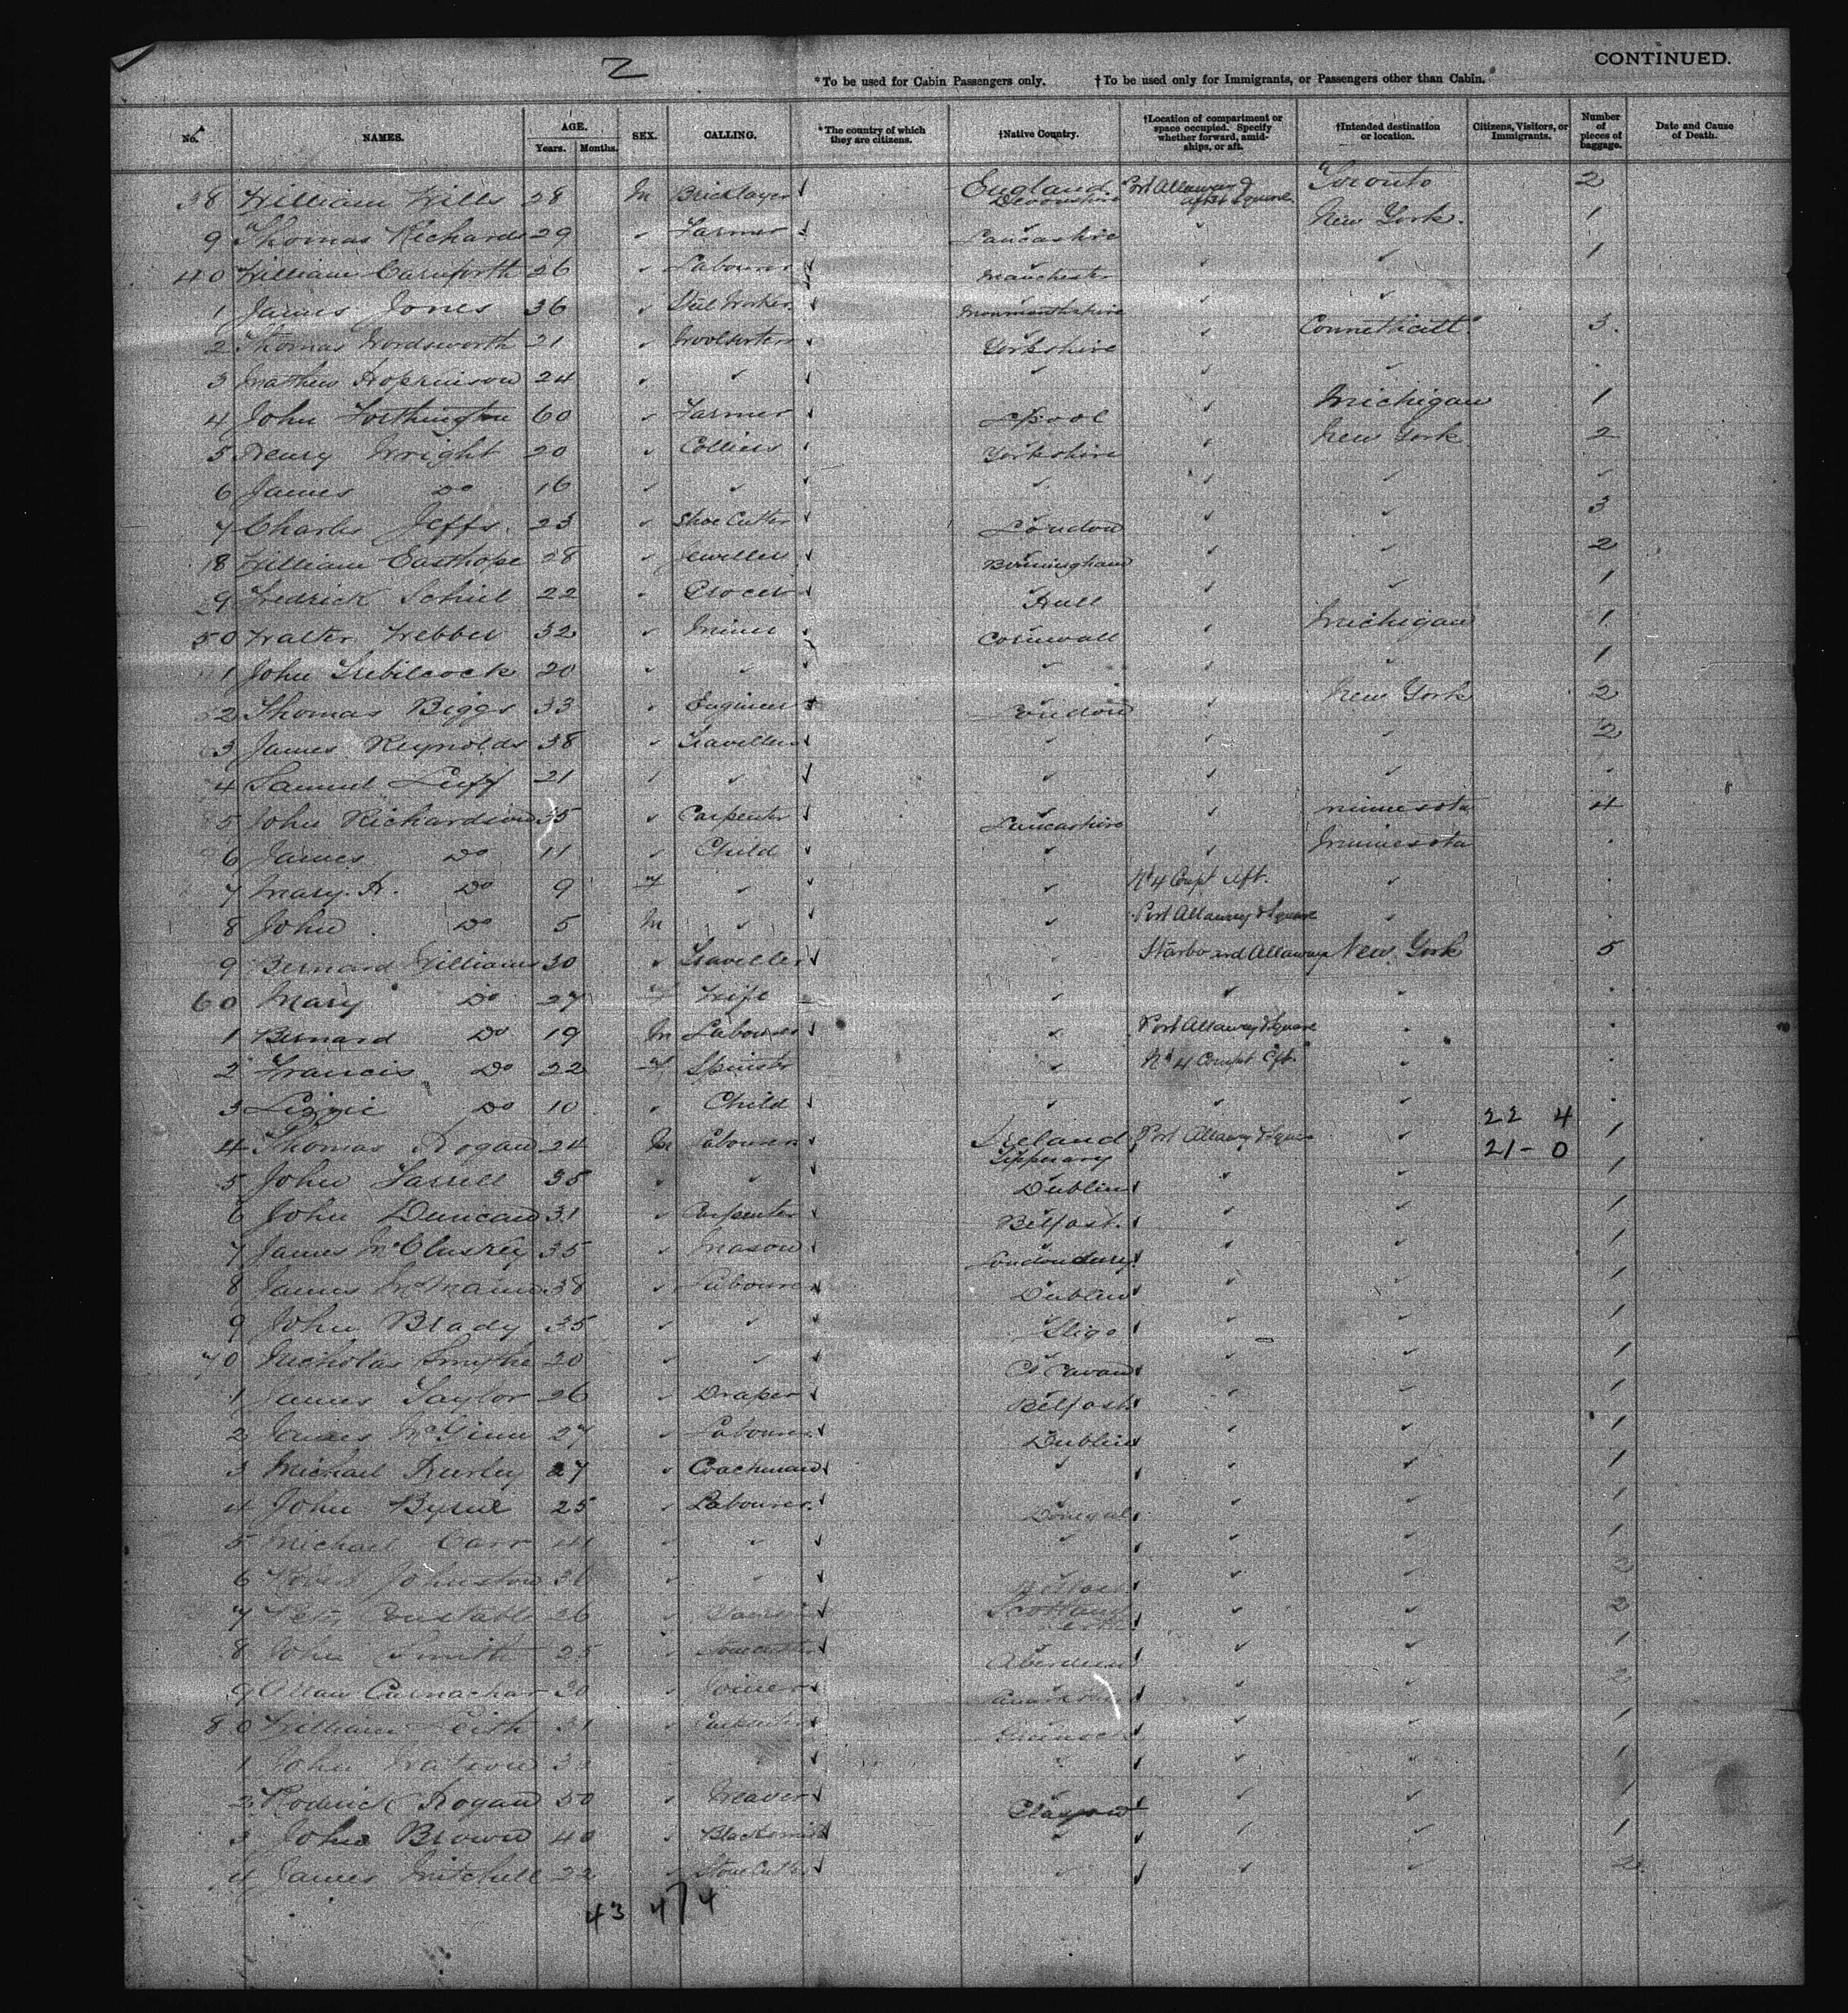 2
CONTINUED.
*To be used for Cabin Passengers only. †To be used only for Immigrants, or Passengers other than Cabin.
No. NAMES. AGE. Years. Months. SEX. CALLING. *The country of which they are citizens. †Native Country. †Location of compartment or space occupied. Specify whether forward, amidships, or aft. †Intended destination or location. Citizens, Visitors, or Immigrants. Number of pieces of baggage. Date and Cause of Death.
38 William Wills 28 M Bricklayer England Devonshire Port Allaway & after Square Toronto 2
9 Thomas Richards 29 Farmer Lancashire New York. 1
40 William Carnforth 26 Labourer Manchester 1
1 James Jones 36 Monmouthshire
2 Thomas Wordsworth 21 Woolsorters Yorkshire Conneticutt 3.
3 Mathew Hopkinson 24
4 John Worthington 60 Farmer Lpool Michigan 1
5 Henry Wright 20 Colliers Yorkshire New York 2
6 James Do 16
7 Charles Jeffs. 23 Shoe Cutter London 3
8 William Easthope 28 Jewellers Birmingham 2
9 Fredrick 22 Grocer Hull 1
50 Walter Webber 32 Miner Cornwall Michigan 1
1 John Trebilcock 20 1
2 Thomas Biggs 33 Engineer London New York 2
3 James Reynolds 38 Travellers 2
4 Samuel Luff 21
5 John Richardson 35 Carpenter Lancashire Minnesota 4
6 James Do 11 Child Minnesota
7 Mary A. Do 9 F No 4 Compt Aft.
8 John Do 5 M Port Allaway & Square
9 Bernard Williams 30 Traveller Starboard Allaway New York 5
60 Mary Do 27 F Wife
1 Bernard Do 19 M Labourer Port Allaway & Square
2 Francis Do 22 F Spinster No 4 Compt Aft.
3 Lizzie Do 10 Child
22 4
4 Thomas Hogan 24 M Labourers Ireland Tipperary Port Allaway & Square 21-0 1
5 John Farrell 35 Dublin 1
6 John Duncan 31 Carpenter Belfast. 1
7 James McCluskey 35 Mason Londonderry 1
8 James McMann 38 Labourer Dublin 1
9 John Brady 35 Sligo 1
70 Nicholas Smythe 20 Co Cavan 1
1 James Taylor 26 Draper Belfast 1
2 James McGinn 27 Labourer Dublin 1
3 Michael Hurley 27 Coachman 1
4 John Byrne 25 Labourer. Donegal 1
5 Michael Carr 41 1
6 Robert Johnston 31 Belfast 2
7 Peter Constable 26 Scotland 2
8 John Smith 25 Stonecutter Aberdeen 1
9 Allan 30 Joiner 2
80 William Leith 31 Carpenter 1
1 John Watson 1
2 Rodrick Hogan 50 Weaver Glasgow 1
3 John Brown 40 Blacksmith 1
4 James Mitchell 22 Stone Cutter 2
43 474